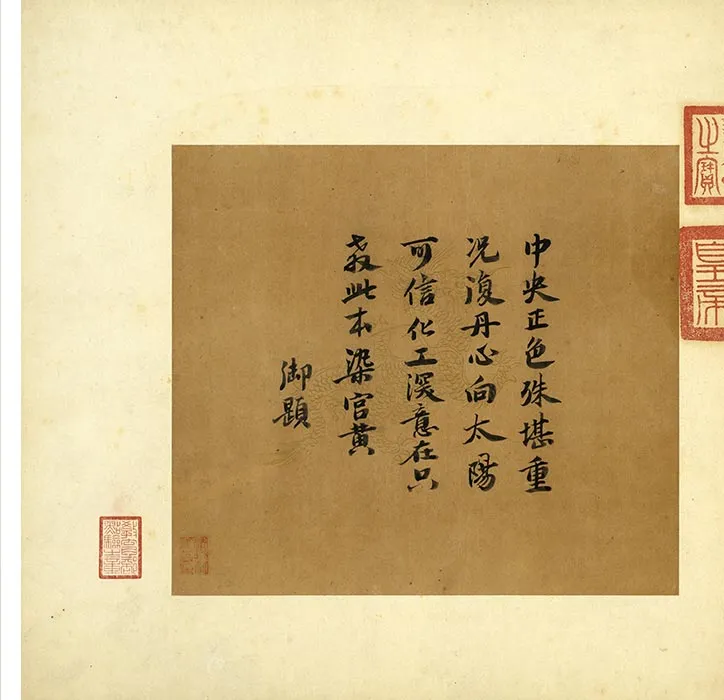 中央正色殊堪重
况復丹心向太陽
可信化工深意在只
教此本染宮黃
御題
之寶
皇帝